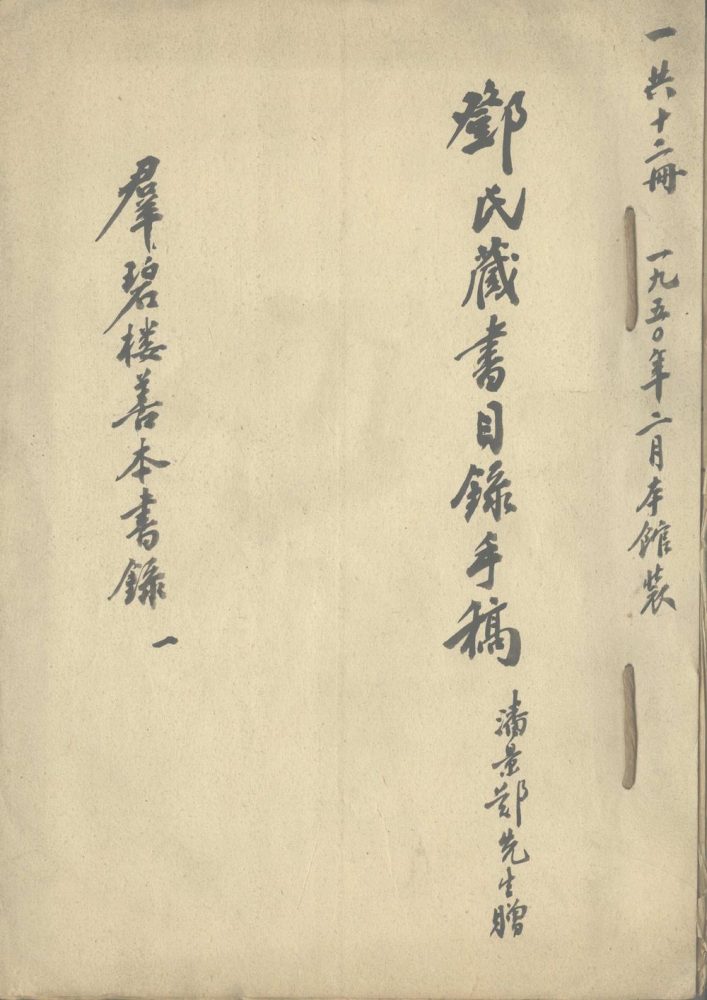 一共十二冊 一九五〇年二月本館裝
鄧氏藏書目錄手稿 潘景郑先生贈
羣碧楼善本書錄 一